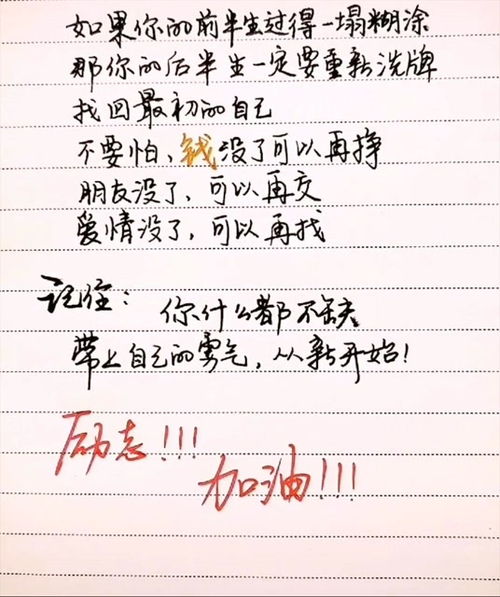 如果你的前半生过得一塌糊涂
那你的后半生一定要重新洗牌
找回最初的自己
不要怕、钱没了可以再挣
朋友没了，可以再交
爱情没了，可以再找
记住：你什么都不缺
带上自己的勇气，从新开始！
励志！！！
加油！！！